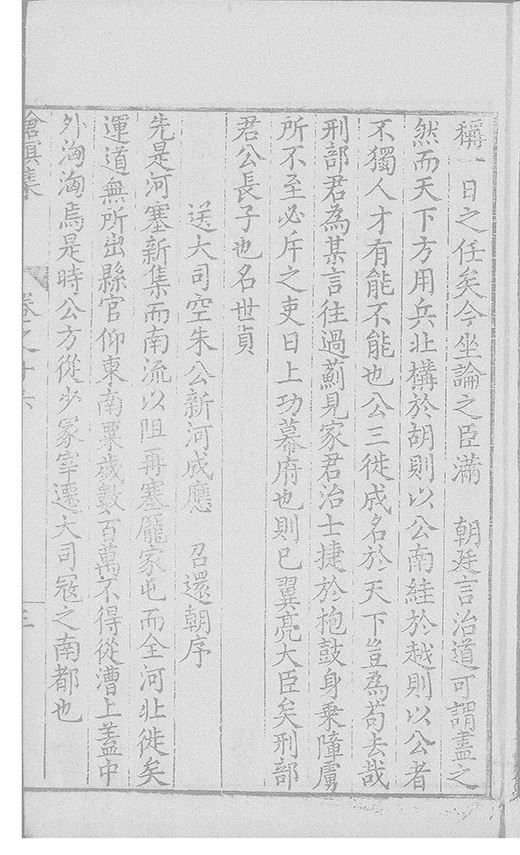 稱一日之任矣今坐論之臣滿　朝廷言治道可謂盡之
然而天下方用兵北構於胡則以公南絓於越則以公者
不獨人才有能不能也公三徙成名於天下豈為苟去哉
刑部君為某言往過薊見家君治士捷於枹鼓身乗障虜
所不至必斥之吏日上功幕府也則已翼亮大臣矣刑部
君公長子也名世貞
送大司空朱公新河成應　召還朝序
先是河塞新集而南流以阻再塞龎家屯而全河北徙矣
運道無所出縣官仰東南粟歲數百萬不得從漕上葢中
外洶洶焉是時公方從少冢宰遷大司冦之南都也
滄溟集　卷之十六　三